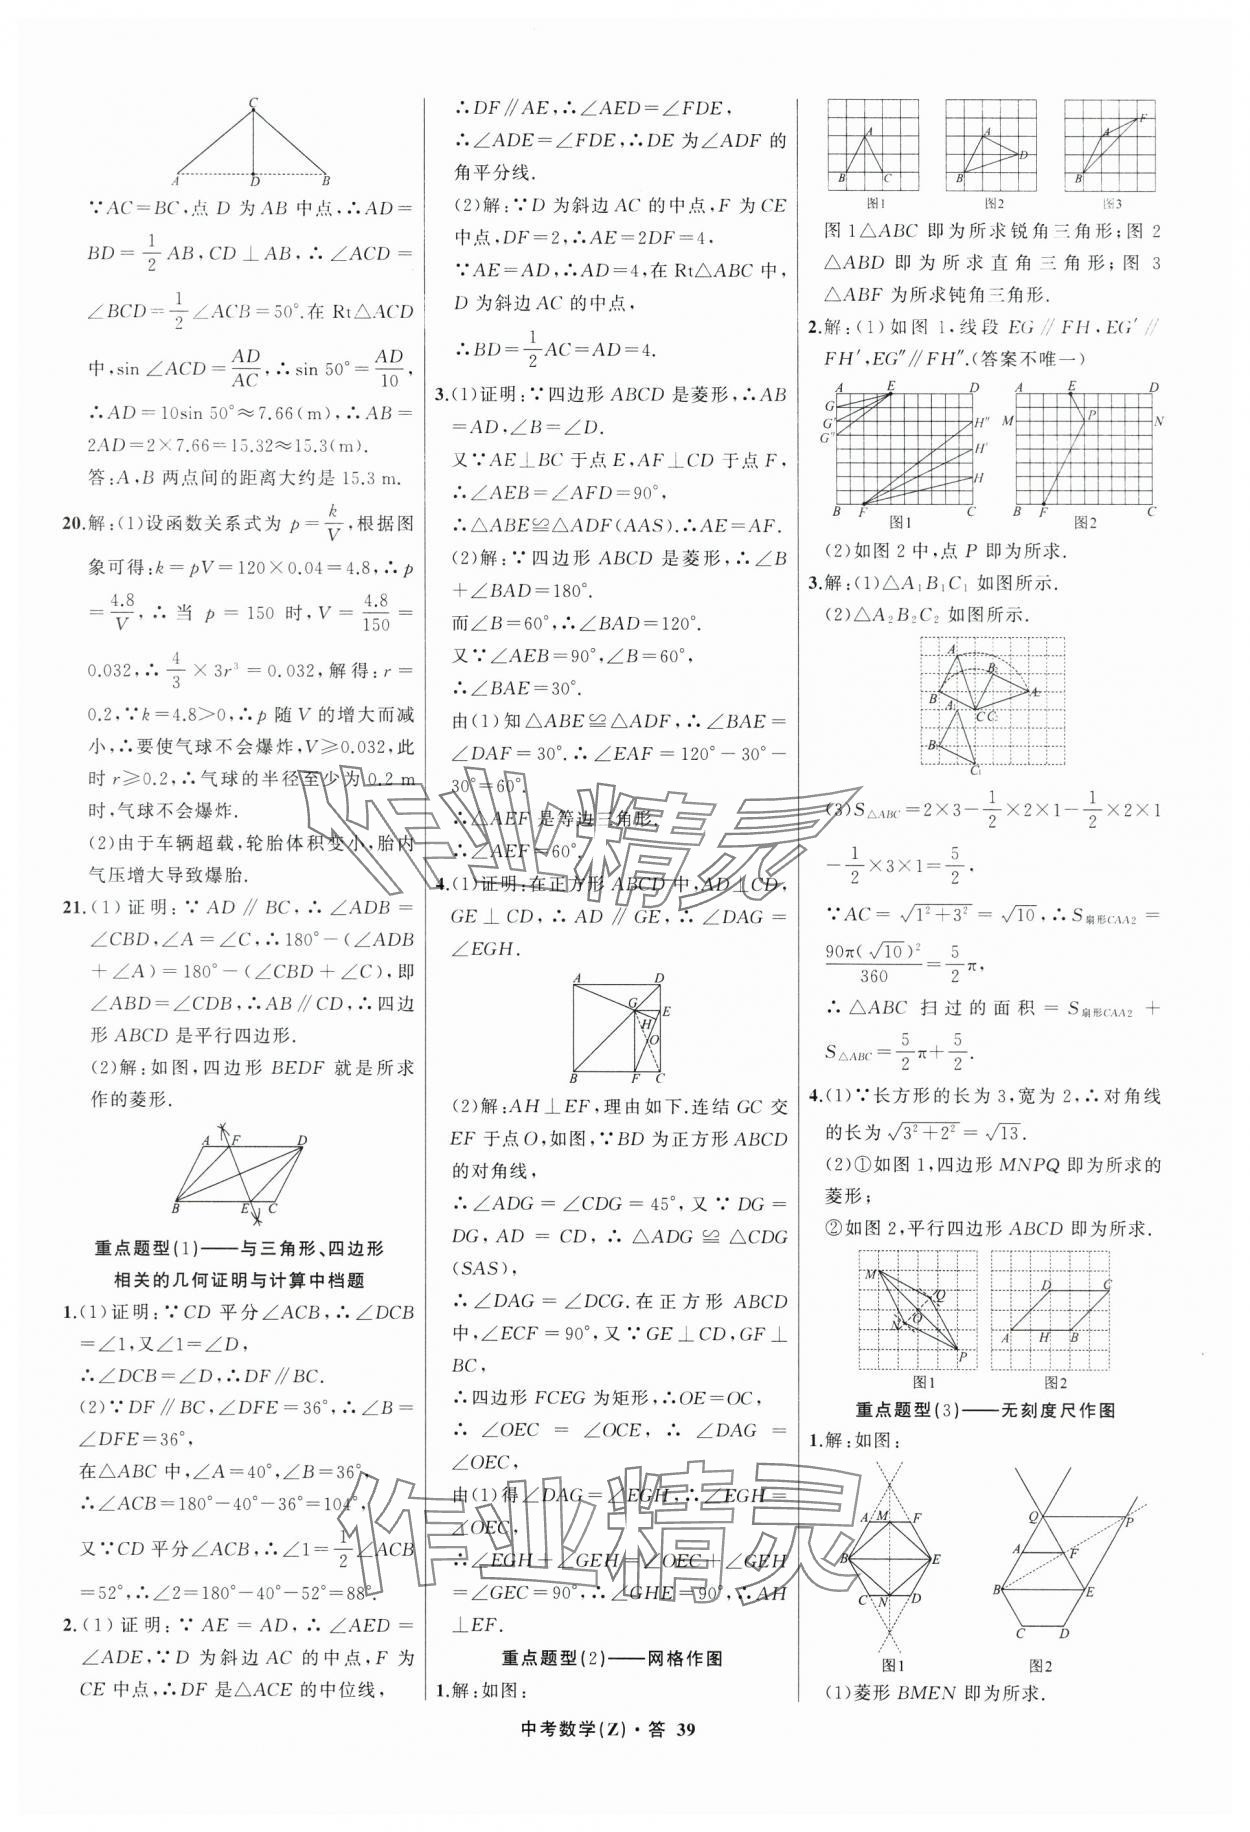 C
A D B
∵AC=BC,点 D 为 AB 中点,∴AD=
BD=1/2 AB,CD⊥AB,∴∠ACD=
∠BCD=1/2∠ACB=50°.在 Rt△ACD
中,sin∠ACD=AD/AC,∴sin 50°=AD/10,
∴AD=10sin 50°≈7.66(m),∴AB=
2AD=2×7.66=15.32≈15.3(m).
答:A,B 两点间的距离大约是 15.3 m.
20.解:(1)设函数关系式为 p=k/V,根据图
象可得:k=pV=120×0.04=4.8,∴p
=4.8/V,∴当 p=150 时,V=4.8/150=
0.032,∴4/3×3r³=0.032,解得:r=
0.2,∵k=4.8>0,∴p 随 V 的增大而减
小,∴要使气球不会爆炸,V≥0.032,此
时 r≥0.2,∴气球的半径至少为 0.2 m
时,气球不会爆炸.
(2)由于车辆超载,轮胎体积变小,胎内
气压增大导致爆胎.
21.(1)证明:∵AD∥BC,∴∠ADB=
∠CBD,∠A=∠C,∴180°-(∠ADB
+∠A)=180°-(∠CBD+∠C),即
∠ABD=∠CDB,∴AB∥CD,∴四边
形 ABCD 是平行四边形.
(2)解:如图,四边形 BEDF 就是所求
作的菱形.
A F D
B E C
重点题型(1)——与三角形、四边形
相关的几何证明与计算中档题
1.(1)证明:∵CD 平分∠ACB,∴∠DCB
=∠1,又∠1=∠D,
∴∠DCB=∠D,∴DF∥BC.
(2)∵DF∥BC,∠DFE=36°,∴∠B=
∠DFE=36°,
在△ABC 中,∠A=40°,∠B=36°,
∴∠ACB=180°-40°-36°=104°,
又∵CD 平分∠ACB,∴∠1=1/2∠ACB
=52°,∴∠2=180°-40°-52°=88°.
2.(1)证明:∵AE=AD,∴∠AED=
∠ADE,∵D 为斜边 AC 的中点,F 为
CE 中点,∴DF 是△ACE 的中位线,
∴DF∥AE,∴∠AED=∠FDE,
∴∠ADE=∠FDE,∴DE 为∠ADF 的
角平分线.
(2)解:∵D 为斜边 AC 的中点,F 为 CE
中点,DF=2,∴AE=2DF=4,
∵AE=AD,∴AD=4,在 Rt△ABC 中,
D 为斜边 AC 的中点,
∴BD=1/2AC=AD=4.
3.(1)证明:∵四边形 ABCD 是菱形,∴AB
=AD,∠B=∠D.
又∵AE⊥BC 于点 E,AF⊥CD 于点 F,
∴∠AEB=∠AFD=90°,
∴△ABE≌△ADF(AAS).∴AE=AF.
(2)解:∵四边形 ABCD 是菱形,∴∠B
+∠BAD=180°.
而∠B=60°,∴∠BAD=120°.
又∵∠AEB=90°,∠B=60°,
∴∠BAE=30°.
由(1)知△ABE≌△ADF,∴∠BAE=
∠DAF=30°.∴∠EAF=120°-30°-
30°=60°.
∴△AEF 是等边三角形.
∴∠AEF=60°.
4.(1)证明:在正方形 ABCD 中,AD⊥CD,
GE⊥CD,∴AD∥GE,∴∠DAG=
∠EGH.
A D
G E
H
O
B F C
(2)解:AH⊥EF,理由如下.连结 GC 交
EF 于点 O,如图,∵BD 为正方形 ABCD
的对角线,
∴∠ADG=∠CDG=45°,又∵DG=
DG,AD=CD,∴△ADG≌△CDG
(SAS),
∴∠DAG=∠DCG.在正方形 ABCD
中,∠ECF=90°,又∵GE⊥CD,GF⊥
BC,
∴四边形 FCEG 为矩形,∴OE=OC,
∴∠OEC=∠OCE,∴∠DAG=
∠OEC,
由(1)得∠DAG=∠EGH,∴∠EGH=
∠OEC,
∴∠EGH+∠GEH=∠OEC+∠GEH
=∠GEC=90°,∴∠GHE=90°,∴AH
⊥EF.
重点题型(2)——网格作图
1.解:如图:
A B C 图1
A B D 图2
A F B 图3
图 1△ABC 即为所求锐角三角形;图 2
△ABD 即为所求直角三角形;图 3
△ABF 为所求钝角三角形.
2.解:(1)如图 1,线段 EG∥FH,EG′∥
FH′,EG″∥FH″.(答案不唯一)
A E D
G G′ G″ H″ H′ H
B F C
图1
A E D
M P N
B F C
图2
(2)如图 2 中,点 P 即为所求.
3.解:(1)△A₁B₁C₁ 如图所示.
(2)△A₂B₂C₂ 如图所示.
A B₂
B A₁ C C₂ A₂
B₁ C₁
(3)S△ABC=2×3-1/2×2×1-1/2×2×1
-1/2×3×1=5/2,
∵AC=√(1²+3²)=√10,∴S扇形CAA2=
90π(√10)²/360=5/2π,
∴△ABC 扫过的面积=S扇形CAA2+
S△ABC=5/2π+5/2.
4.(1)∵长方形的长为 3,宽为 2,∴对角线
的长为√(3²+2²)=√13.
(2)①如图 1,四边形 MNPQ 即为所求的
菱形;
②如图 2,平行四边形 ABCD 即为所求.
M Q O N P
图1
D C A H B
图2
重点题型(3)——无刻度尺作图
1.解:如图:
A M F
B E
C N D
图1
Q P
A F
B E
C D
图2
(1)菱形 BMEN 即为所求.
中考数学(Z)·答 39
作业精灵
作业精灵